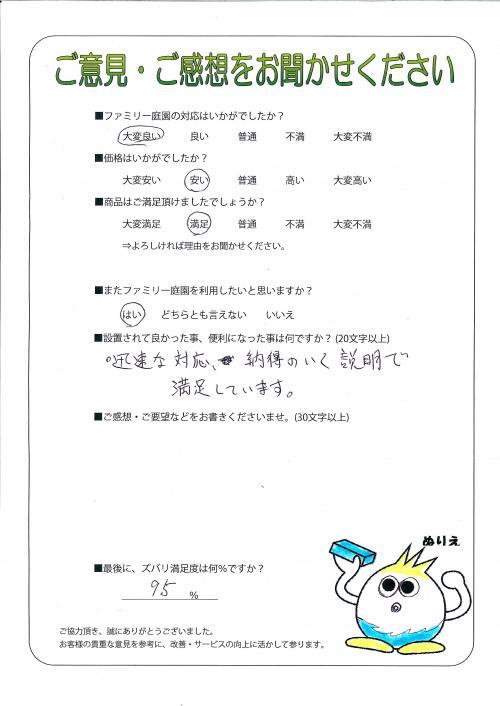 ご意見・ご感想をお聞かせください
■ファミリー庭園の対応はいかがでしたか？
大変良い 良い 普通 不満 大変不満
■価格はいかがでしたか？
大変安い 安い 普通 高い 大変高い
■商品はご満足頂けましたでしょうか？
大変満足 満足 普通 不満 大変不満
⇒よろしければ理由をお聞かせください。
■またファミリー庭園を利用したいと思いますか？
はい どちらとも言えない いいえ
■設置されて良かった事、便利になった事は何ですか？(20文字以上)
迅速な対応、納得のいく説明で
満足しています。
■ご感想・ご要望などをお書きくださいませ。(30文字以上)
ぬりえ
■最後に、ズバリ満足度は何%ですか？
95 %
ご協力頂き、誠にありがとうございました。
お客様の貴重な意見を参考に、改善・サービスの向上に活かして参ります。